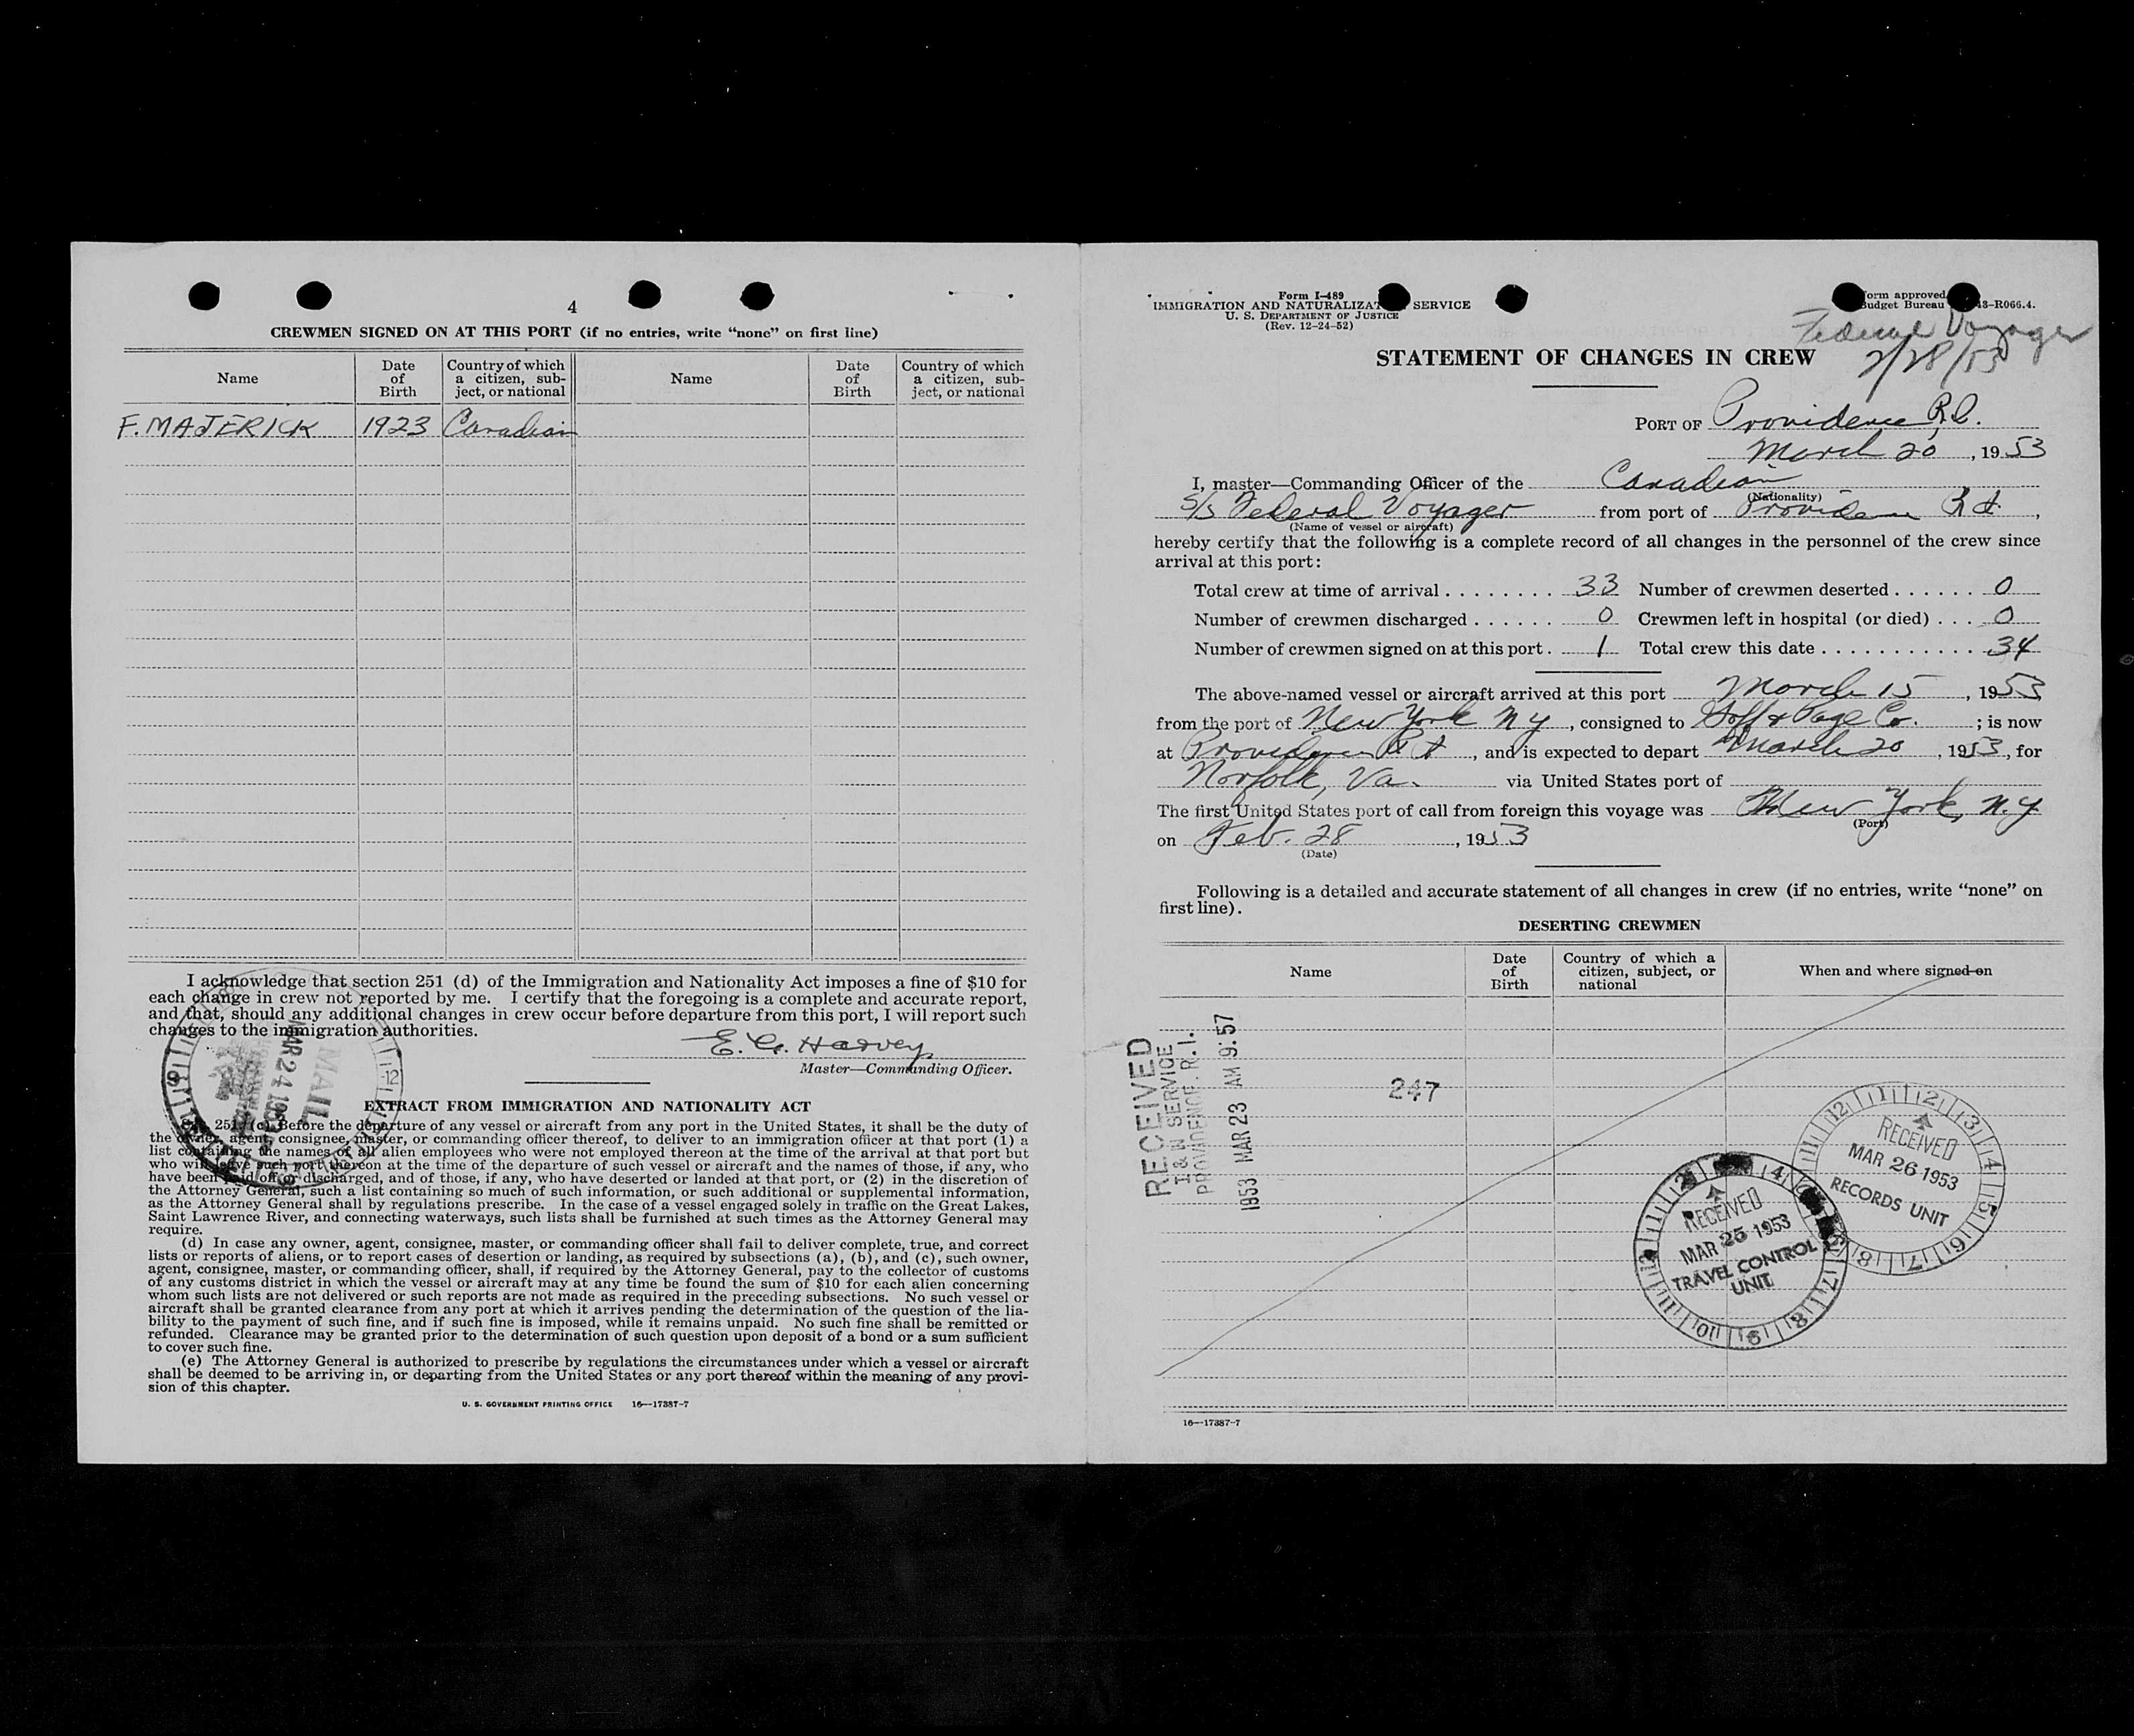 4
CREWMEN SIGNED ON AT THIS PORT (if no entries, write “none” on first line)
Name
Date of Birth
Country of which a citizen, subject, or national
Name
Date of Birth
Country of which a citizen, subject, or national
F. MAJERICK 1923 Canadian
I acknowledge that section 251 (d) of the Immigration and Nationality Act imposes a fine of $10 for
each change in crew not reported by me. I certify that the foregoing is a complete and accurate report,
and that, should any additional changes in crew occur before departure from this port, I will report such
changes to the immigration authorities.
E. G. Harvey
Master—Commanding Officer.
MAIL
MAR 24 1953
EXTRACT FROM IMMIGRATION AND NATIONALITY ACT
251. (c) Before the departure of any vessel or aircraft from any port in the United States, it shall be the duty of
the owner, agent, consignee, master, or commanding officer thereof, to deliver to an immigration officer at that port (1) a
list containing the names of all alien employees who were not employed thereon at the time of the arrival at that port but
who will leave such port thereon at the time of the departure of such vessel or aircraft and the names of those, if any, who
have been paid off or discharged, and of those, if any, who have deserted or landed at that port, or (2) in the discretion of
the Attorney General, such a list containing so much of such information, or such additional or supplemental information,
as the Attorney General shall by regulations prescribe. In the case of a vessel engaged solely in traffic on the Great Lakes,
Saint Lawrence River, and connecting waterways, such lists shall be furnished at such times as the Attorney General may
require.
(d) In case any owner, agent, consignee, master, or commanding officer shall fail to deliver complete, true, and correct
lists or reports of aliens, or to report cases of desertion or landing, as required by subsections (a), (b), and (c), such owner,
agent, consignee, master, or commanding officer, shall, if required by the Attorney General, pay to the collector of customs
of any customs district in which the vessel or aircraft may at any time be found the sum of $10 for each alien concerning
whom such lists are not delivered or such reports are not made as required in the preceding subsections. No such vessel or
aircraft shall be granted clearance from any port at which it arrives pending the determination of the question of the lia-
bility to the payment of such fine, and if such fine is imposed, while it remains unpaid. No such fine shall be remitted or
refunded. Clearance may be granted prior to the determination of such question upon deposit of a bond or a sum sufficient
to cover such fine.
(e) The Attorney General is authorized to prescribe by regulations the circumstances under which a vessel or aircraft
shall be deemed to be arriving in, or departing from the United States or any port thereof within the meaning of any provi-
sion of this chapter.
U. S. GOVERNMENT PRINTING OFFICE 16—17387-7
Form I-489
IMMIGRATION AND NATURALIZAT SERVICE
U. S. DEPARTMENT OF JUSTICE
(Rev. 12-24-52)
orm approved
udget Bureau 43-R066.4.
Federal Voyager
2/28/53
STATEMENT OF CHANGES IN CREW
PORT OF Providence, R.I.
March 20, 1953
I, master—Commanding Officer of the Canadian
(Nationality)
S/S Federal Voyager from port of Providence R I,
(Name of vessel or aircraft)
hereby certify that the following is a complete record of all changes in the personnel of the crew since
arrival at this port:
Total crew at time of arrival . . . . . . . . 33 Number of crewmen deserted . . . . . . 0
Number of crewmen discharged . . . . . . 0 Crewmen left in hospital (or died) . . . 0
Number of crewmen signed on at this port . 1 Total crew this date . . . . . . . . . . . . 34
The above-named vessel or aircraft arrived at this port March 15, 1953
from the port of New York N Y, consigned to Goff & Page Co. ; is now
at Providence R I, and is expected to depart March 20, 1953, for
Norfolk, Va. via United States port of
The first United States port of call from foreign this voyage was New York, N.Y.
(Port)
on Feb. 28, 1953
(Date)
Following is a detailed and accurate statement of all changes in crew (if no entries, write “none” on
first line).
DESERTING CREWMEN
Name
Date of Birth
Country of which a citizen, subject, or national
When and where signed on
RECEIVED
I & N SERVICE
PROVIDENCE, R. I.
1953 MAR 23 AM 9:57
247
RECEIVED
MAR 26 1953
RECORDS UNIT
RECEIVED
MAR 25 1953
TRAVEL CONTROL
UNIT
16—17387-7